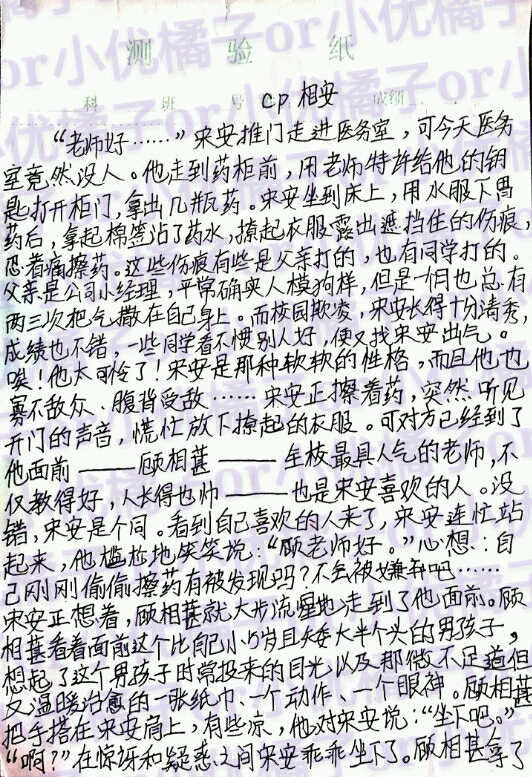 测 验 纸
科 班 号 成绩
cp 相安
“老师好……”宋安推门走进医务室，可今天医务
室竟然没人。他走到药柜前，用老师特许给他的钥
匙打开柜门，拿出几瓶药。宋安坐到床上，用水服下胃
药后，拿起棉签沾了药水，撩起衣服露出遮挡住的伤痕，
忍着痛擦药。这些伤痕有些是父亲打的，也有同学打的。
父亲是公司小经理，平常确实人模狗样，但是一個月也总有
两三次把气撒在自己身上。而校园欺凌，宋安长得十分清秀，
成绩也不错，一些同学看不惯别人好，便又找宋安出气。
唉！他太可怜了！宋安是那种软软的性格，而且他也
寡不敌众、腹背受敌……宋安正擦着药，突然听见
开门的声音，慌忙放下撩起的衣服。可对方已经到了
他面前——顾相甚——全校最具人气的老师，不
仅教得好，人长得也帅——也是宋安喜欢的人。没
错，宋安是个同。看到自己喜欢的人来了，宋安连忙站
起来，他尴尬地笑笑说：“顾老师好。”心想：自
己刚刚偷偷擦药有被发现吗？不会被嫌弃吧……
宋安正想着，顾相甚就大步流星地走到了他面前。顾
相甚看着面前这个比自己小5岁且矮大半个头的男孩子，
想起了这个男孩子时常投来的目光以及那微不足道但
又温暖治愈的一张纸巾、一个动作、一个眼神。顾相甚
把手搭在宋安肩上，有些凉，他对宋安说：“坐下吧。”
“啊？”在惊讶和疑惑之间宋安乖乖坐下了。顾相甚拿了
or小优橘子or小优橘子or小优橘子